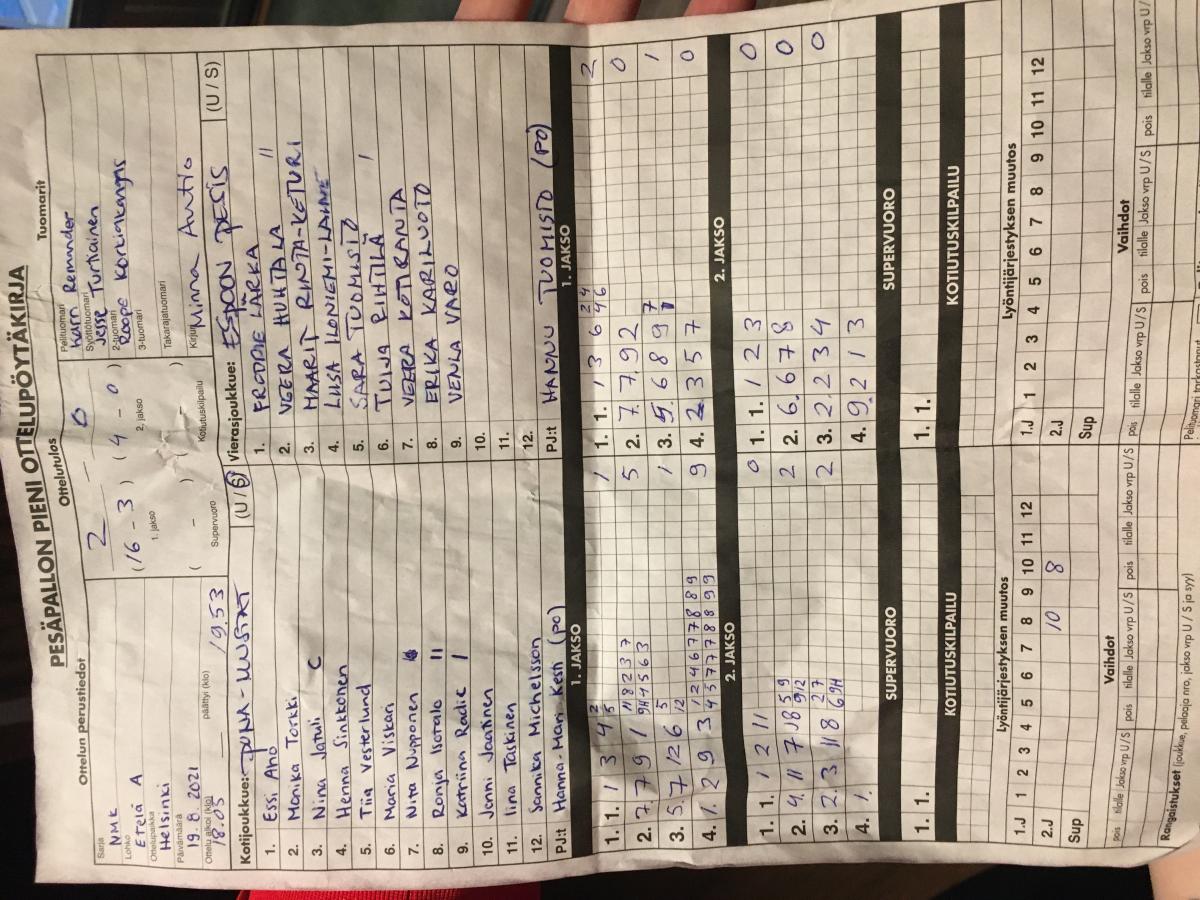 PESÄPALLON PIENI OTTELUPÖYTÄKIRJA
Ottelun perustiedot
Ottelutulos
Tuomarit
Sarja
NMK
Lohko
Etelä A
Ottelupaikka
Helsinki
Päivämäärä
19.8.2021
Ottelu alkoi (klo)
18.05
päättyi (klo)
19.53
2 – 0
(16 – 3) (4 – 0)
1. jakso
2. jakso
( – ) ( – )
Supervuoro
Kotiutuskilpailu
Pelituomari
Karri Remander
Syöttötuomari
Jesse Turtiainen
2-tuomari
Roope Korkiakangas
3-tuomari
Takarajatuomari
Kirjuri
Minna Autio
Kotijoukkue: PUNA-MUSTAT (U / S)
1. Essi Aho
2. Marika Torkki
3. Nina Jatuli C
4. Henna Sinkkonen
5. Tiia Vesterlund
6. Maria Viskari
7. Nita Nupponen
8. Ronja Isotalo II
9. Katriina Radic I
10. Jenni Jaatinen
11. Iina Taskinen
12. Sannika Michelsson
PJ:t Hanna-Mari Kesti (PO)
Vierasjoukkue: ESPOON PESIS (U / S)
1. FRÖDDIE LÄRKA
2. VEERA HUHTALA II
3. MAARIT RINTA-KETURI
4. LIISA ILONIEMI-LAINE
5. SARA TUOMISTO I
6. TUIJA RIHTILÄ
7. VEERA KOTIRANTA
8. ERIKA KARILUOTO
9. VENLA VARO
10.
11.
12.
PJ:t HANNU TUOMISTO (PO)
1. JAKSO
1. 1. 1 3 4 2 5 1
2. 7. 7 9 1 11 8 2 3 7 9H 4 5 6 3 5
3. 5. 7 12 6 5 12 1
4. 1. 2 9 3 1 2 4 6 7 7 8 8 9 4 5 7 7 7 8 8 9 9 9
2. JAKSO
1. 1. 1 2 11 0
2. 4. 11 7 10 8 5 9 9 12 2
3. 2. 3 11 8 2 7 6 9H 2
4. 1.
SUPERVUORO
1. 1.
KOTIUTUSKILPAILU
1. JAKSO
1. 1. 1 3 6 2 4 4 6 2
2. 7. 7 9 2 0
3. 5. 6 8 9 7 1
4. 2. 3 5 7 0
2. JAKSO
1. 1. 1 2 3 0
2. 6. 6 7 8 0
3. 2. 2 3 4 0
4. 9. 2 1 3
SUPERVUORO
1. 1.
KOTIUTUSKILPAILU
Lyöntijärjestyksen muutos
1.J 1 2 3 4 5 6 7 8 9 10 11 12
2.J 10 8
Sup
Vaihdot
pois tilalle Jakso vrp U/S pois tilalle Jakso vrp U/S pois tilalle Jakso vrp U/S
Lyöntijärjestyksen muutos
1.J 1 2 3 4 5 6 7 8 9 10 11 12
2.J
Sup
Vaihdot
pois tilalle Jakso vrp U/S pois tilalle Jakso vrp U/S pois tilalle Jakso vrp U/S
Rangaistukset (joukkue, pelaaja nro, jakso vrp, U / S ja syy)
Pelituomari tarkastanut